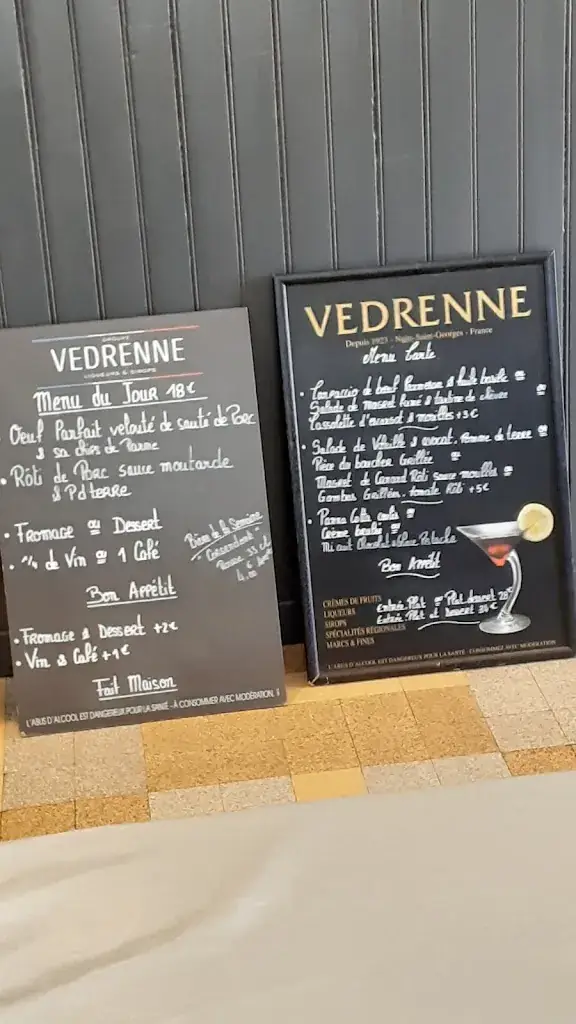 GROUPE
VEDRENNE
LIQUEURS & SIROPS
Menu du Jour 18€
Oeuf Parfait velouté de de Porc
& sa chips de Parme
• Rôti de Porc sauce moutarde
& Pdterre
• Fromage ou Dessert
• 1/4 de Vin ou 1 Café
Bière de la Semaine
33 cl
Bon Appétit
• Fromage & Dessert +2€
• Vin & Café +1€
Fait Maison
L'ABUS D'ALCOOL EST DANGEREUX POUR LA SANTÉ - À CONSOMMER AVEC MODÉRATION.
VEDRENNE
Depuis 1923 - Nuits-Saint-Georges - France
Menu Carte
• de boeuf Parmesan & huile basilic ou
Salade de fumé & de chèvre ou
Cassolette d'escargot & morilles +3€
• Salade de & avocat, Pomme de terre ou
Pièce du boucher Grillée ou
Magret de Canard Rôti sauce morilles ou
Gambas Grillées, tomate Rôti +5€
• Panna Cotta coulis ou
Crème brulée ou
Mi cuit Chocolat Pistache
Bon Appétit
Entrée Plat ou Plat dessert 28€
Entrée Plat et Dessert 34€
CRÈMES DE FRUITS
LIQUEURS
SIROPS
SPÉCIALITÉS RÉGIONALES
MARCS & FINES
L'ABUS D'ALCOOL EST DANGEREUX POUR LA SANTÉ - CONSOMMEZ AVEC MODÉRATION